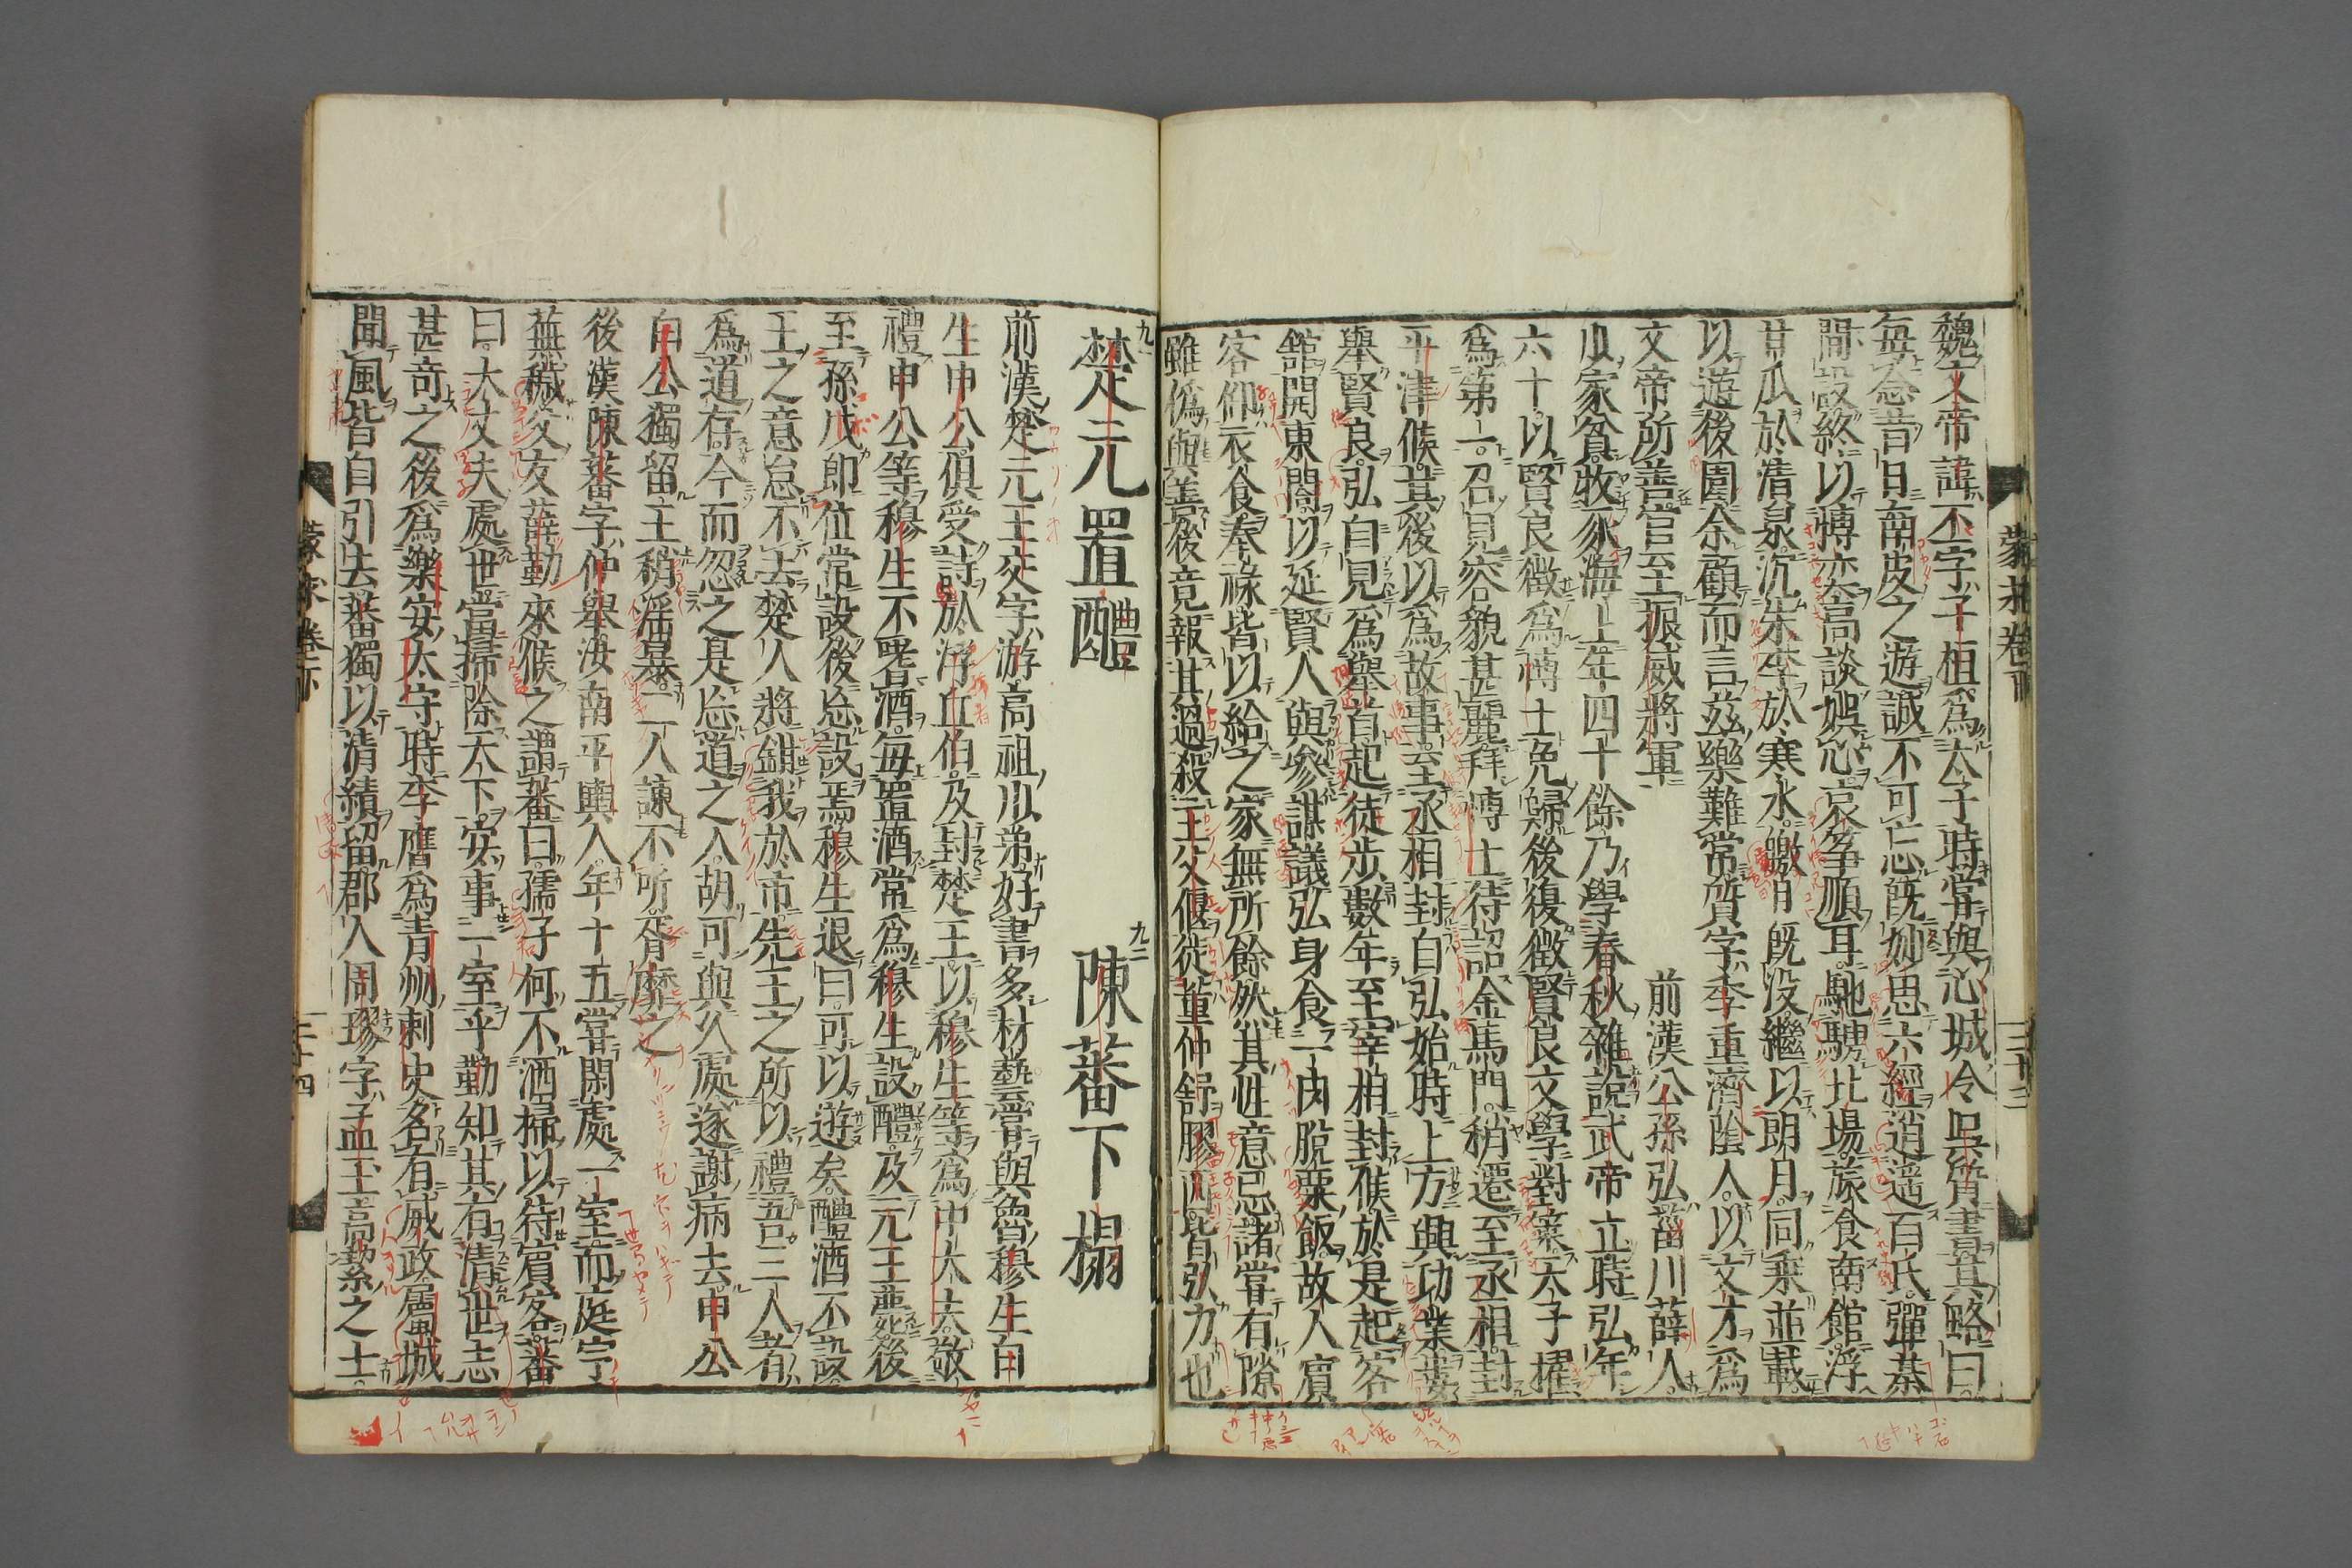 魏文帝諱丕字子桓爲太子時嘗與元城令呉質書其略曰
毎念昔日南皮之遊誠不可忘既妙思六經逍遥百氏彈棊
間設終以博奕高談娯心哀箏順耳馳騁北場旅食南館浮
甘瓜於清泉沉朱李於寒水皦月既没繼以朗月同乗並載
以遊後園余顧而言茲樂難常質字季重濟陰人以文才爲
文帝所善官至振威將軍　前漢公孫弘菑川薛人
家貧牧豕海上年四十餘乃學春秋雜説武帝立時弘年
六十以賢良徴爲博士免歸後復徴賢良文學對策天子擢
爲第一召見容貌甚麗拜博士待詔金馬門稍遷至丞相封
平津侯其後以爲故事至丞相封自弘始時上方興功業婁
舉賢良弘自見爲舉首起徒歩數年至宰相封侯於是起客
館開東閤以延賢人與參謀議弘身食一肉脱粟飯故人賓
客仰衣食奉祿皆以給之家無所餘然其性意忌諸甞有隙
雖僞與善後竟報其過殺主父偃徙董仲舒膠西皆弘力也
蒙求卷下
三十三
九一
楚元置醴
九二
陳蕃下榻
前漢楚元王交字游高祖少弟好書多材藝甞與魯穆生白
生申公倶受詩於浮丘伯及封楚王以穆生等爲中大夫敬
禮申公等穆生不嗜酒毎置酒常爲穆生設醴及元王薨後
至孫戊即位常設後忘設焉穆生退曰可以遊矣醴酒不設
王之意怠不去楚人將鉗我於市先王之所以禮吾三人者
爲道存今而忽之是忘道之人胡可與久處遂謝病去申公
白公獨留王稍淫暴二人諫不所胥靡之
後漢陳蕃字仲舉汝南平輿人年十五嘗閑處一室而庭宇
蕪穢父友薛勤來候之謂蕃曰孺子何不洒掃以待賓客蕃
曰大丈夫處世當掃除天下安事一室乎勤知其有清世志
甚奇之後爲樂安太守時李膺爲青州刺史名有威政屬城
聞風皆自引去蕃獨以清績留郡人周璆字孟玉高絜之士
蒙求卷下
三十四